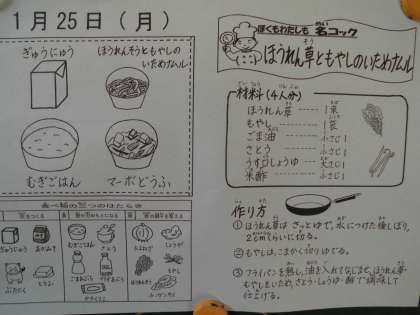 1月25日(月)
ぎゅうにゅう
ほうれんそうともやしの
いためナムル
むぎごはん
マーボどうふ
食べ物の三つのはたらき
ぎゅうにゅう
ぶたにく
とうふ
むぎごはん
さとう
ごまあぶら
しょうが
もやし
ぼくもわたしも 名コック
ほうれん草ともやしのいためナムル
材料(4人分)
ほうれん草 ------ 1束
もやし ------ 1袋
ごま油 ------ 小さじ1
さとう ------ 小さじ1
うす口しょうゆ ---- 大さじ1
米酢 ------ 小さじ1
作り方
① ほうれん草は さっとゆで、水につけた後しぼり、
2cmくらいに切る。
② もやしは、こまかく切りゆでる。
③ フライパンを熱し、油を入れてなじませ、ほうれん草・
もやしをいため、さとう・しょうゆ・酢で調味して
仕上げる。